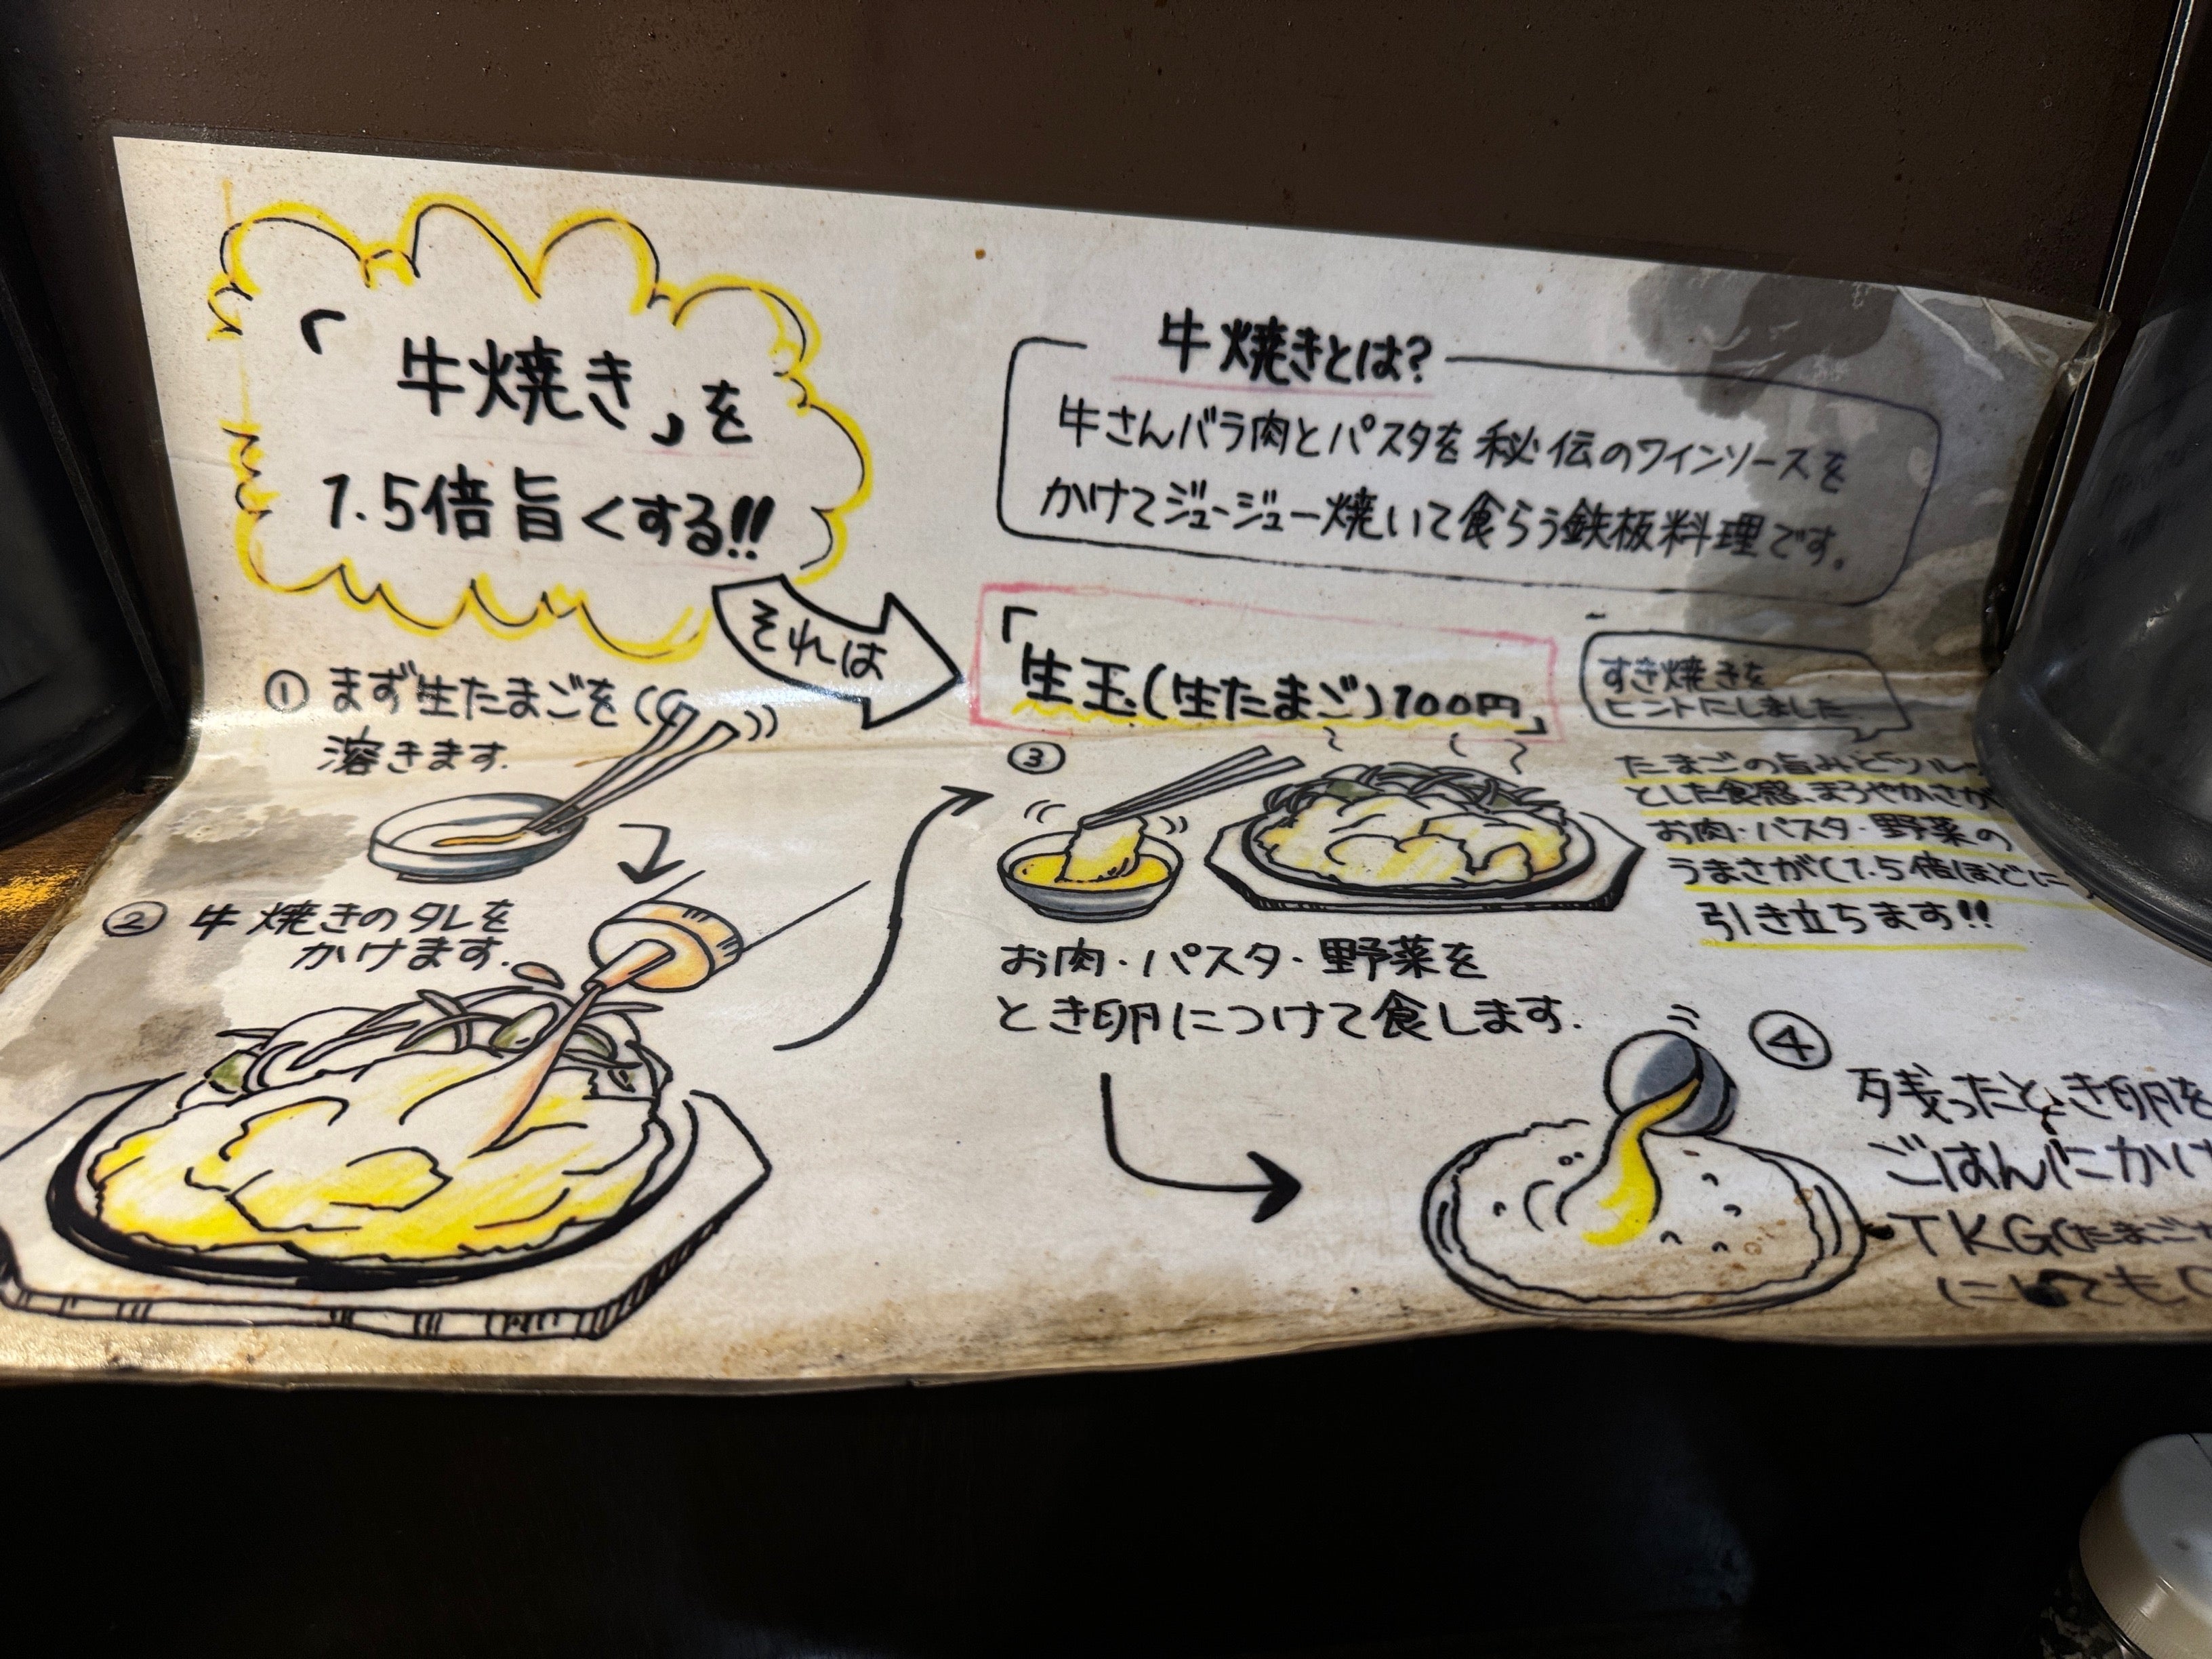 「牛焼き」を
1.5倍旨くする!!
それは
牛焼きとは?
牛さんバラ肉とパスタを秘伝のワインソースを
かけてジュージュー焼いて食らう鉄板料理です。
「生玉(生たまご)100円」
すき焼きを
ヒントにしました
① まず生たまごを
溶きます.
② 牛焼きのタレを
かけます.
③
お肉・パスタ・野菜を
とき卵につけて食します.
たまごの旨みとツル
とした食感、まろやかさが
お肉・パスタ・野菜の
うまさが(1.5倍ほどに
引き立ちます!!
④
残ったとき卵を
ごはんにかけ
TKG(たまご
にしても